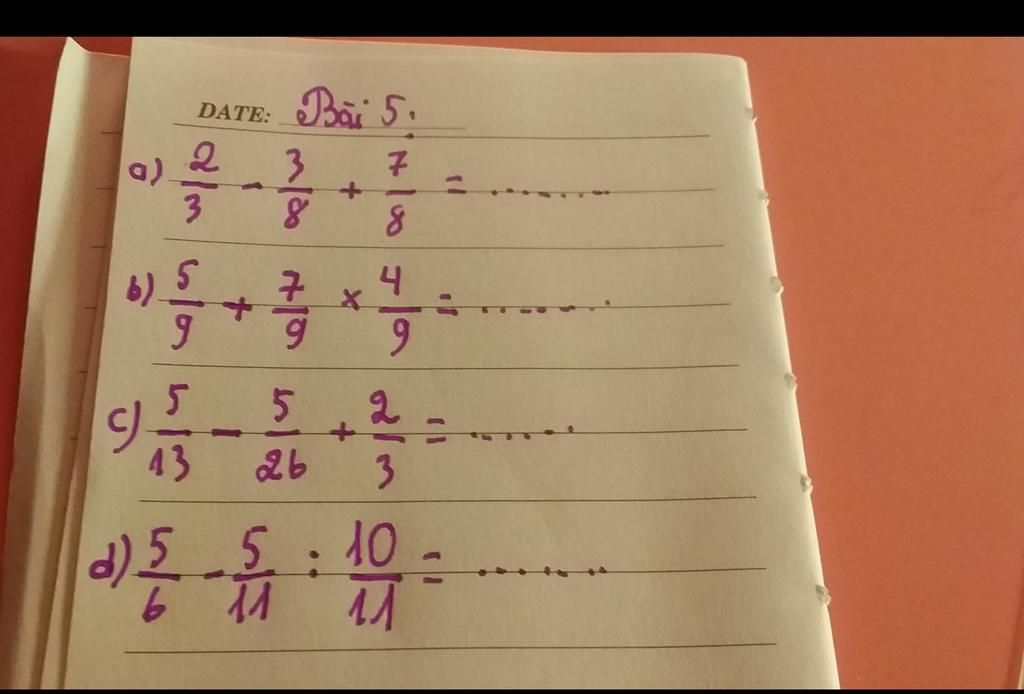 DATE: Bài 5:
a) 2/3 - 3/8 + 7/8 = .......
b) 5/9 + 7/9 × 4/9 = .......
c) 5/13 - 5/26 + 2/3 = ......
d) 5/6 - 5/11 : 10/11 = ......